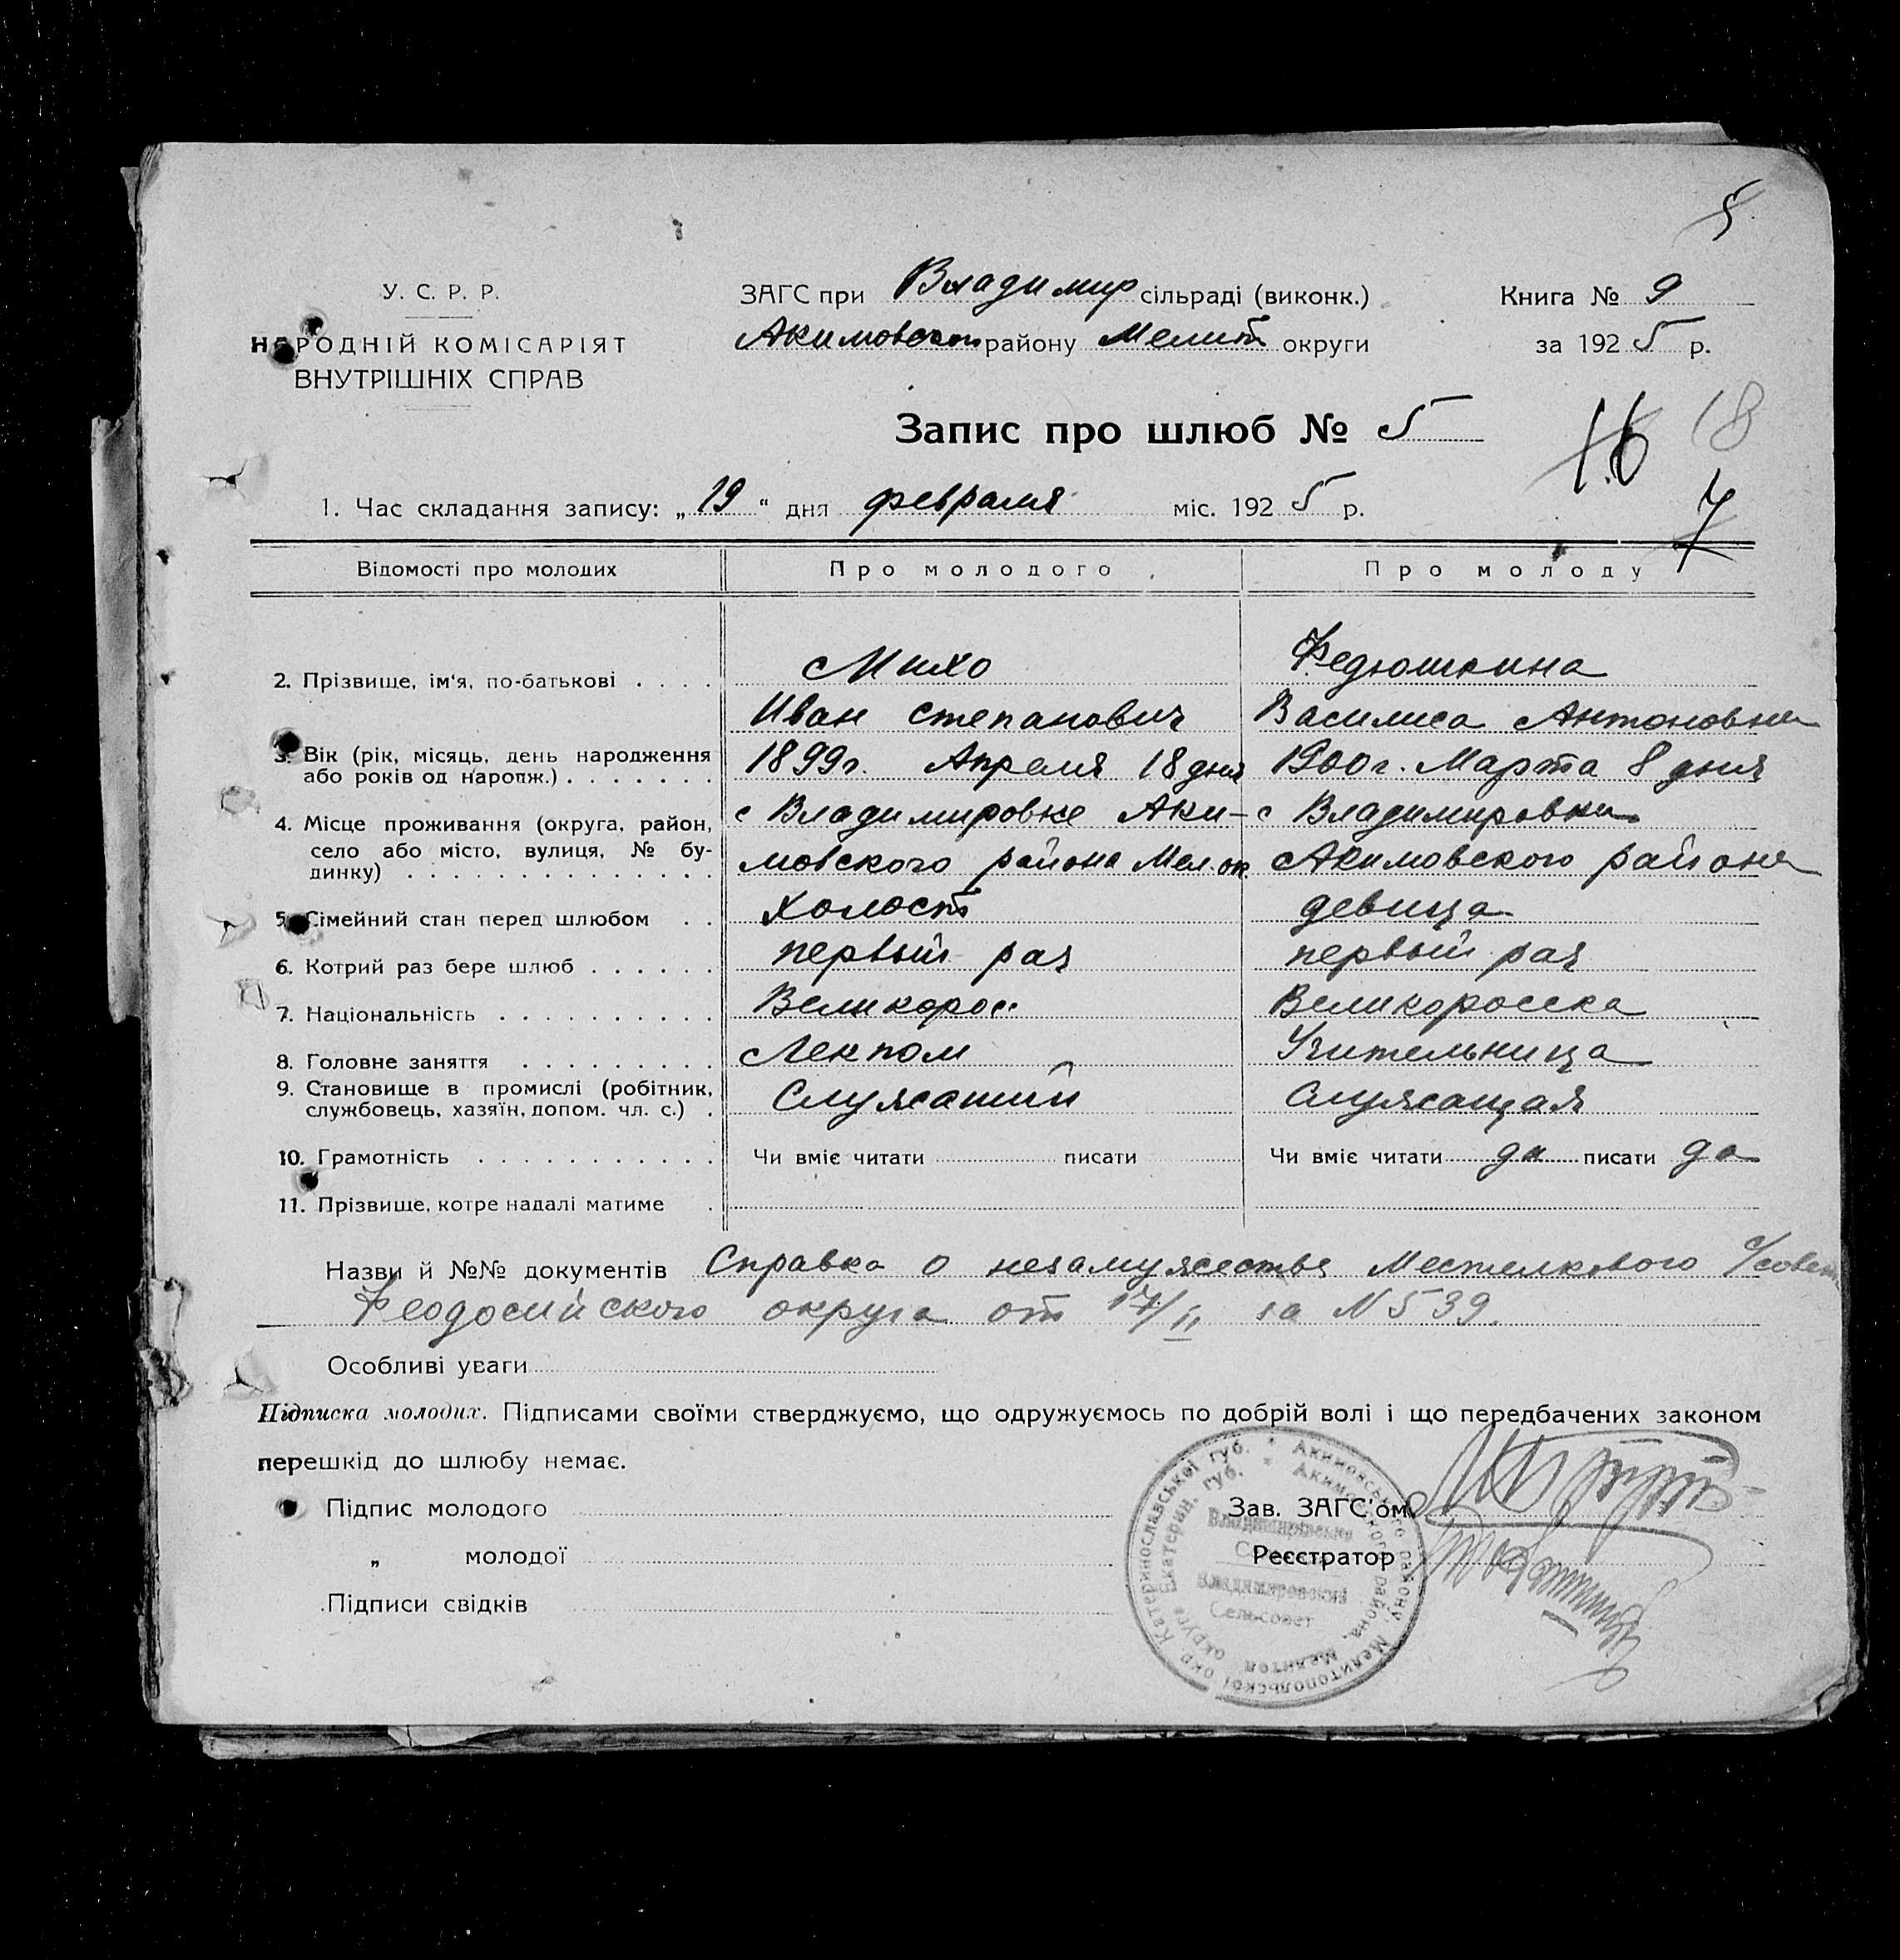 5
У. С. Р. Р.
НАРОДНІЙ КОМІСАРІЯТ
ВНУТРІШНІХ СПРАВ
ЗАГС при Владимир сільраді (виконк.)
Акимовском району Мелит округи
Книга № 9
за 1925 р.
Запис про шлюб № 5
16 18
7
1. Час складання запису: „19“ дня февраля міс. 1925 р.
Відомості про молодих Про молодого Про молоду
2. Прізвище, ім'я, по-батькові . . . . Михо Федюшкина
Иван Степанович Василиса Антоновна
3. Вік (рік, місяць, день народження
або років од нарояж.) . . . . . . . 1899г. Апреля 18 дня 1900г. Марта 8 дня
4. Місце проживання (округа, район, с Владимировке Аки- с Владимировки
село або місто, вулиця, № бу-
динку) . . . . . . . . . . . . . . мовского района Мел. ок. Акимовского района
5. Сімейний стан перед шлюбом . . холост девица
6. Котрий раз бере шлюб . . . . . . первый раз первый раз
7. Національність . . . . . . . . . . Великорос Великоросска
8. Головне заняття . . . . . . . . . Лекпом Учительница
9. Становище в промислі (робітник,
службовець, хазяїн, допом. чл. с.) . Служащий Служащая
10. Грамотність . . . . . . . . . . . Чи вміє читати писати Чи вміє читати да писати да
11. Прізвище, котре надалі матиме .
Назви й №№ документів Справка о незамужестве Местелкового с/совет
Феодосийского округа от 17/II за N 539.
Особливі уваги
Підписка молодих. Підписами своїми стверджуємо, що одружуємось по добрій волі і що передбачених законом
перешкід до шлюбу немає.
Підпис молодого
„ молодої
Підписи свідків
Зав. ЗАГС'ом
Реєстратор
Катеринославської губ. * Акимовського району, Мелитопольської окр.
Екатерин. губ. * Акимовского района, Мелитоп. округа
Владимирівська
Владимировский
Сельсовет